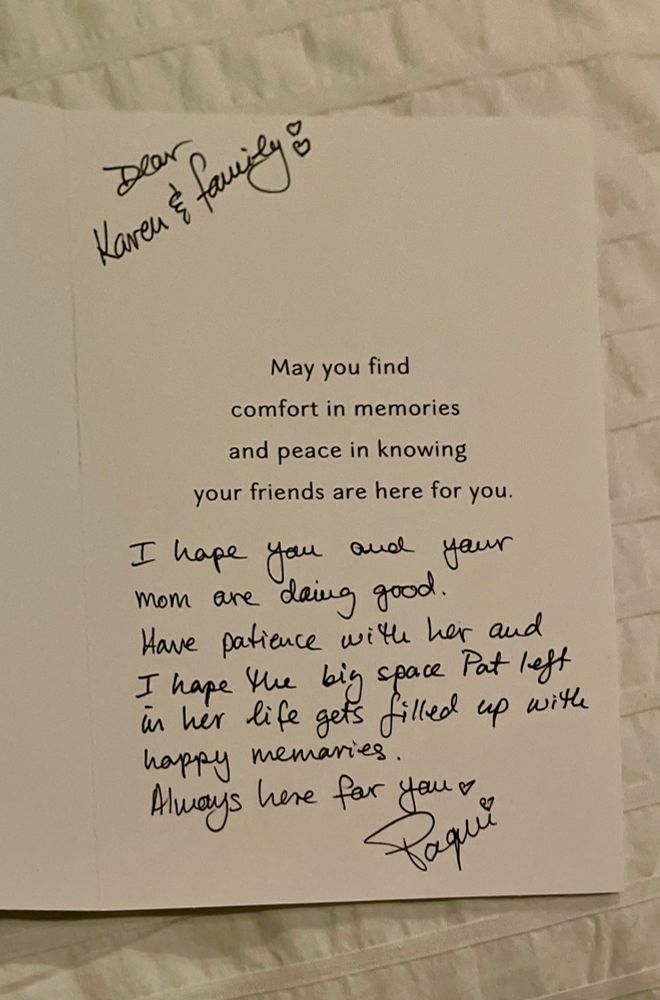 Dear
Karen & family
May you find
comfort in memories
and peace in knowing
your friends are here for you.
I hope you and your
mom are doing good.
Have patience with her and
I hope the big space Pat left
in her life gets filled up with
happy memories.
Always here for you
Paqui